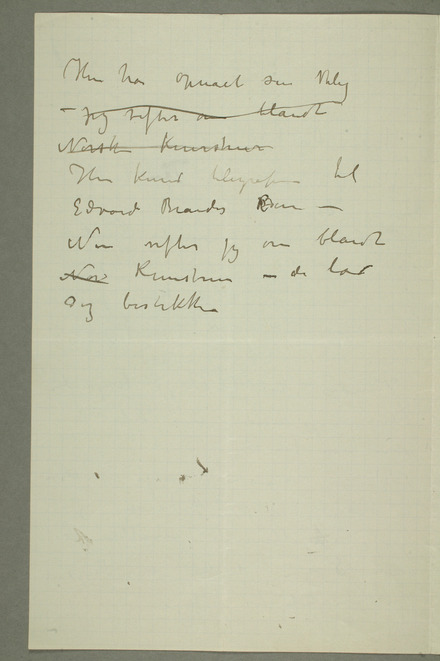 Hun har opnaaet sin Vilie
– jeg sifter om blandt
Norske Kunstnere
Hun kunde telegrafere til
Edvard Brandes –
Nu sifter jeg om blandt
Nor Kunstnere – de lod
sig bestikke